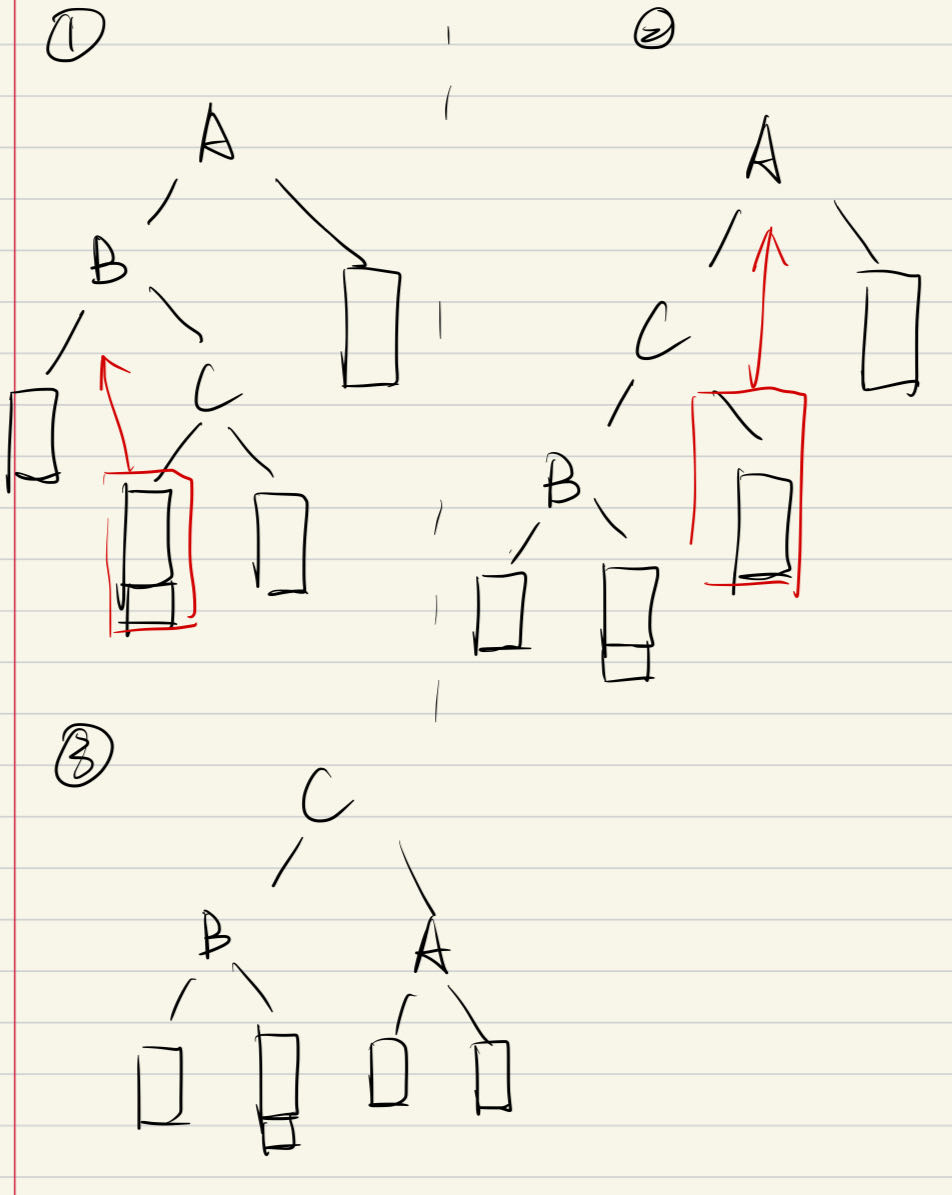 ①
②
A
B
C
A
C
B
③
C
B
A